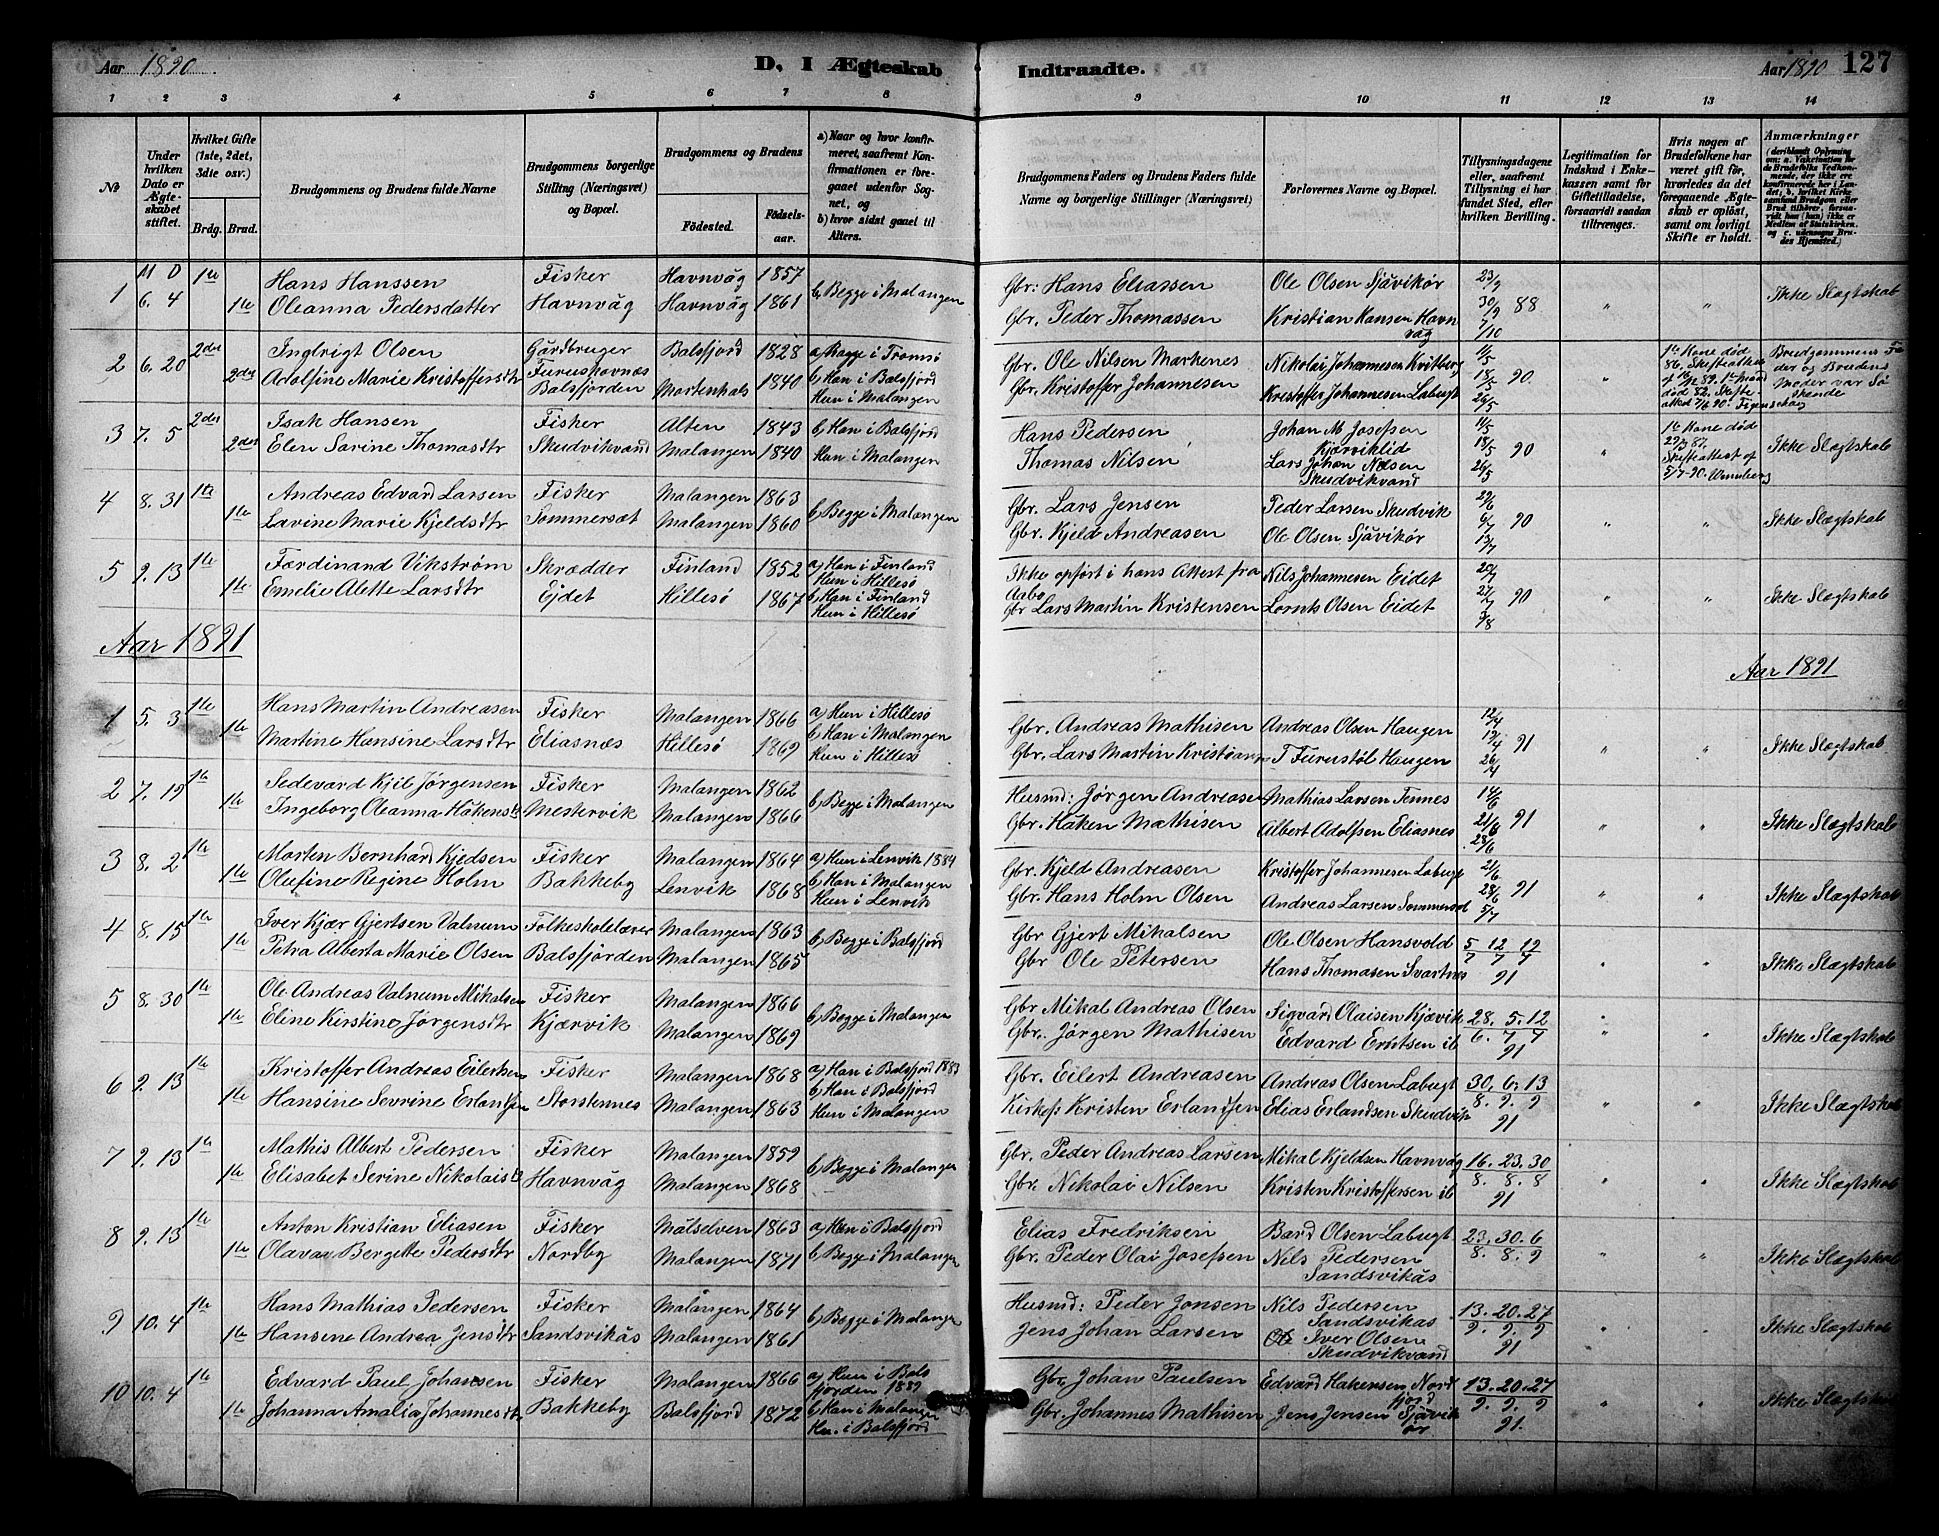 Aar 1890. D. I Ægteskab Indtraadte. Aar 1890 127
1 2 3 4 5 6 7 8 9 10 11 12 13 14
№
Under hvilken Dato er Ægteskabet stiftet.
Hvilket Gifte (1ste, 2det, 3die osv.)
Brdg. Brud.
Brudgommens og Brudens fulde Navne
Brudgommens borgerlige Stilling (Næringsvei) og Bopæl.
Brudgommens og Brudens
Fødested. Fødselsaar.
a) Naar og hvor konfirmeret, saafremt Konfirmationen er foregaaet udenfor Sognet, og
b) hvor sidst gaaet til Alters.
Brudgommens Faders og Brudens Faders fulde Navne og borgerlige Stillinger (Næringsvei)
Forlovernes Navne og Bopæl.
Tillysningsdagene eller, saafremt Tillysning ei har fundet Sted, efter hvilken Bevilling.
Legitimation for Indskud i Enkekassen samt for Giftetilladelse, forsaavidt saadan tiltrænges.
Hvis nogen af Brudefolkene har været gift før, hvorledes da det foregaaende Ægteskab er opløst, samt om lovligt Skifte er holdt.
Anmærkninger
1 M D 6. 4 1te Hans Hanssen Fisker Havnvåg 1857 b, Begge i Malangen Gbr: Hans Eliassen Ole Olsen Sjåvikør 23/9 Ikke Slægtskab
1te Oleanna Pedersdatter Havnvåg Havnvåg 1861 Gbr. Peder Thomassen Kristian Hansen Havnvåg 30/9 88 7/10 " "
2 6. 20 2det Inglrigt Olsen Gårdbruger Balsfjord 1828 a) Begge i Tromsø Gbr. Ole Nilsen Markenes Nikolai Johannesen Kvitberg 11/5
2det Adolfine Marie Kristoffersdtr Furushovnæs Balsfjorden Mortenhals 1840 b, Han i Balsfjord Hun i Malangen Gbr. Kristoffer Johannesen Kristoffer Johannesen Labugt 18/5 90 26/5 "
1te Kone død 86. Skifteattest
Brudgommens Fader og Brudens Moder var Søskende
3 7. 5 2det Isak Hansen Fisker Alten 1843 b, Han i Balsfjord Hans Pedersen Johan M Josefsen Kjørviklid 11/5
2det Elen Sarine Thomasdtr Skudvikvand Malangen 1840 Hun i Malangen Thomas Nilsen Lars Johan Nilsen Skudvikvand 18/5 90 26/5 "
1te Kone død 27/3 87. Skifteattest af 5/7-90.
Ikke Slægtskab
4 8. 31 1te Andreas Edvard Larsen Fisker Malangen 1863 b, Begge i Malangen Gbr. Lars Jensen Peder Larsen Skudvik 29/6
1te Lavine Marie Kjeldsdtr Sommersæt Malangen 1860 Gbr. Kjeld Andreasen Ole Olsen Sjåvikør 6/7 90 13/7 " " Ikke Slægtskab
5 9. 13 1te Færdinand Vikstrøm Skrædder Finland 1852 a) Han i Finland Hun i Hillesø Ikke opført i hans Attest fra Aabo Nils Johannesen Eidet 20/7
1te Emelie Alette Larsdtr Ejdet Hillesø 1867 b, Han i Finland Hun i Hillesø Gbr Lars Martin Kristensen Lornts Olsen Eidet 27/7 90 3/8 " " Ikke Slægtskab
Aar 1891 Aar 1891
1 5. 3 1te Hans Martin Andreasen Fisker Malangen 1866 a) Hun i Hillesø Gbr. Andreas Mathisen Andreas Olsen Haugen 12/4
1te Martine Hansine Larsdtr Eliasnæs Hillesø 1869 b, Han i Malangen Hun i Hillesø Gbr. Lars Martin Kristiansen T Furustøl Haugen 19/4 91 26/4 " " Ikke Slægtskab
2 7. 19 1te Sedevard Kjil Jørgensen Fisker Malangen 1862 b, Begge i Malangen Husmd: Jørgen Andreasen Mathias Larsen Tennes 14/6
1te Ingeborg Oleanna Håkensd Mestervik Malangen 1866 Gbr. Håken Mathisen Albert Adolfsen Eliasnes 21/6 91 28/6 " " Ikke Slægtskab
3 8. 2 1te Morten Bernhard Kjedsen Fisker Malangen 1864 a) Hun i Lenvik 1884 Gbr. Kjeld Andreasen Kristoffer Johannesen Labugt 21/6
1te Olufine Regine Holm Bakkeby Lenvik 1868 b, Han i Malangen Hun i Lenvik Gbr. Hans Holm Olsen Andreas Larsen Sommersæt 28/6 91 5/7 " " Ikke Slægtskab
4 8. 15 1te Iver Kjær Gjertsen Valnum Folkeskolelærer Malangen 1863 b, Begge i Balsfjord Gbr Gjert Mikalsen Ole Olsen Hansvold 5/7 12/7 19/7
1te Petra Alberta Marie Olsen Balsfjorden Malangen 1865 Gbr Ole Petersen Hans Thomasen Svartnes 91 " " Ikke Slægtskab
5 8. 30 1te Ole Andreas Valnum Mikalsen Fisker Malangen 1866 b, Begge i Malangen Gbr. Mikal Andreas Olsen Sigvard Olaisen Kjævik 28/6. 5/7. 12/7
1te Eline Kirstine Jørgensdtr Kjærvik Malangen 1869 Gbr. Jørgen Mathisen Edvard Erntsen ib 91 " " Ikke Slægtskab
6 9. 13 1te Kristoffer Andreas Eilertsen Fisker Malangen 1868 a) Han i Balsfjord 1883 Gbr. Eilert Andreasen Andreas Olsen Labugt 30/8. 6/9. 13/9
1te Hansine Severine Erlandsen Storstennes Malangen 1863 b, Han i Balsfjord Hun i Malangen Kirkes: Kristen Erlandsen Elias Erlandsen Skudvik 91 " " Ikke Slægtskab
7 9. 13 1te Mathis Albert Pedersen Fisker Malangen 1859 b, Begge i Malangen Gbr. Peder Andreas Larsen Mikal Kjeldsen Havnvåg 16/8. 23/8. 30/8
1te Elisabet Serine Nikolaisd Havnvåg Malangen 1868 Gbr. Nikolai Nilsen Kristen Kristoffersen ib 91 " " Ikke Slægtskab
8 9. 13 1te Anton Kristian Eliasen Fisker Målselven 1863 a) Han i Balsfjord Elias Fredriksen Bard Olsen Labugt 23/8. 30/8. 6/9
1te Olava Bergette Pedersdtr Nordby Malangen 1871 b, Begge i Malangen Gbr. Peder Olai Josefsen Nils Pedersen Sandsvikås " " Ikke Slægtskab
9 10. 4 1te Hans Mathias Pedersen Fisker Malangen 1864 b, Begge i Malangen Husmd: Peder Jonsen Nils Pedersen Sandsvikas 13/9. 20/9. 27/9
1te Hansine Andrea Jensdtr Sandsvikås Malangen 1861 Jens Johan Larsen Iver Olsen Skudvikvand 91 " " Ikke Slægtskab
10 10. 4 1te Edvard Paul Johansen Fisker Malangen 1866 a) Hun i Balsfjorden 1889 Gbr. Johan Paulsen Edvard Hakensen Nordfjord 13/9. 20/9. 27/9
1te Johanna Amalia Johannesdtr Bakkeby Balsfjord 1872 b, Han i Malangen Hun. i Balsfjord Gbr. Johannes Mathisen Jens Jensen Sjåvikør 91. " " Ikke Slægtskab